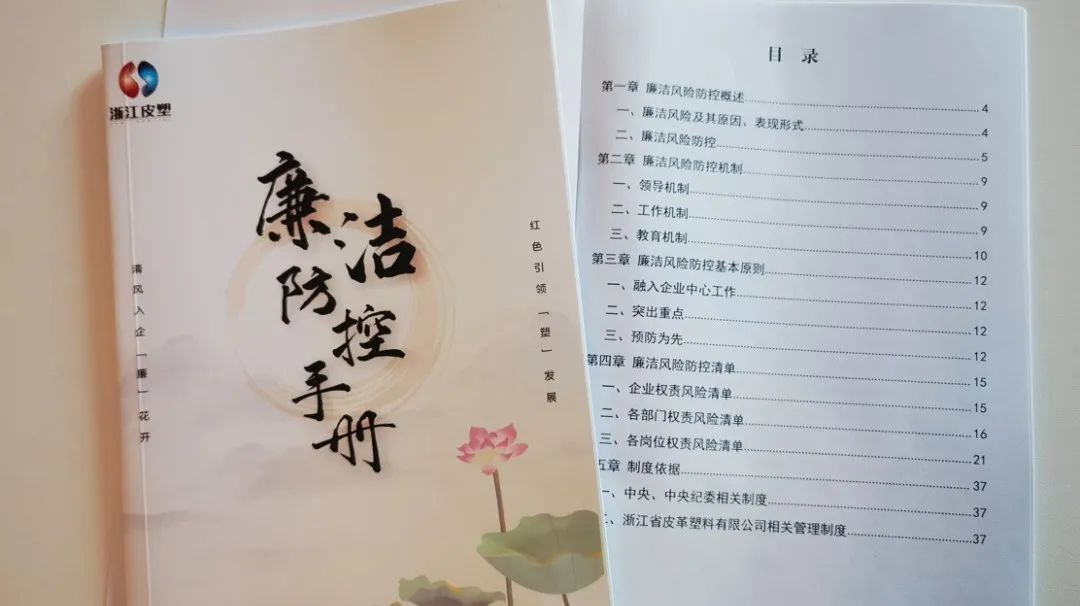 浙江皮塑
廉洁
防控
手册
清风入企「廉」花开
红色引领「塑」发展
目 录
第一章 廉洁风险防控概述 4
一、廉洁风险及其原因、表现形式 4
二、廉洁风险防控 5
第二章 廉洁风险防控机制 9
一、领导机制 9
二、工作机制 9
三、教育机制 10
第三章 廉洁风险防控基本原则 12
一、融入企业中心工作 12
二、突出重点 12
三、预防为先 12
第四章 廉洁风险防控清单 15
一、企业权责风险清单 15
二、各部门权责风险清单 16
三、各岗位权责风险清单 21
五章 制度依据 37
一、中央、中央纪委相关制度 37
二、浙江省皮革塑料有限公司相关管理制度 37